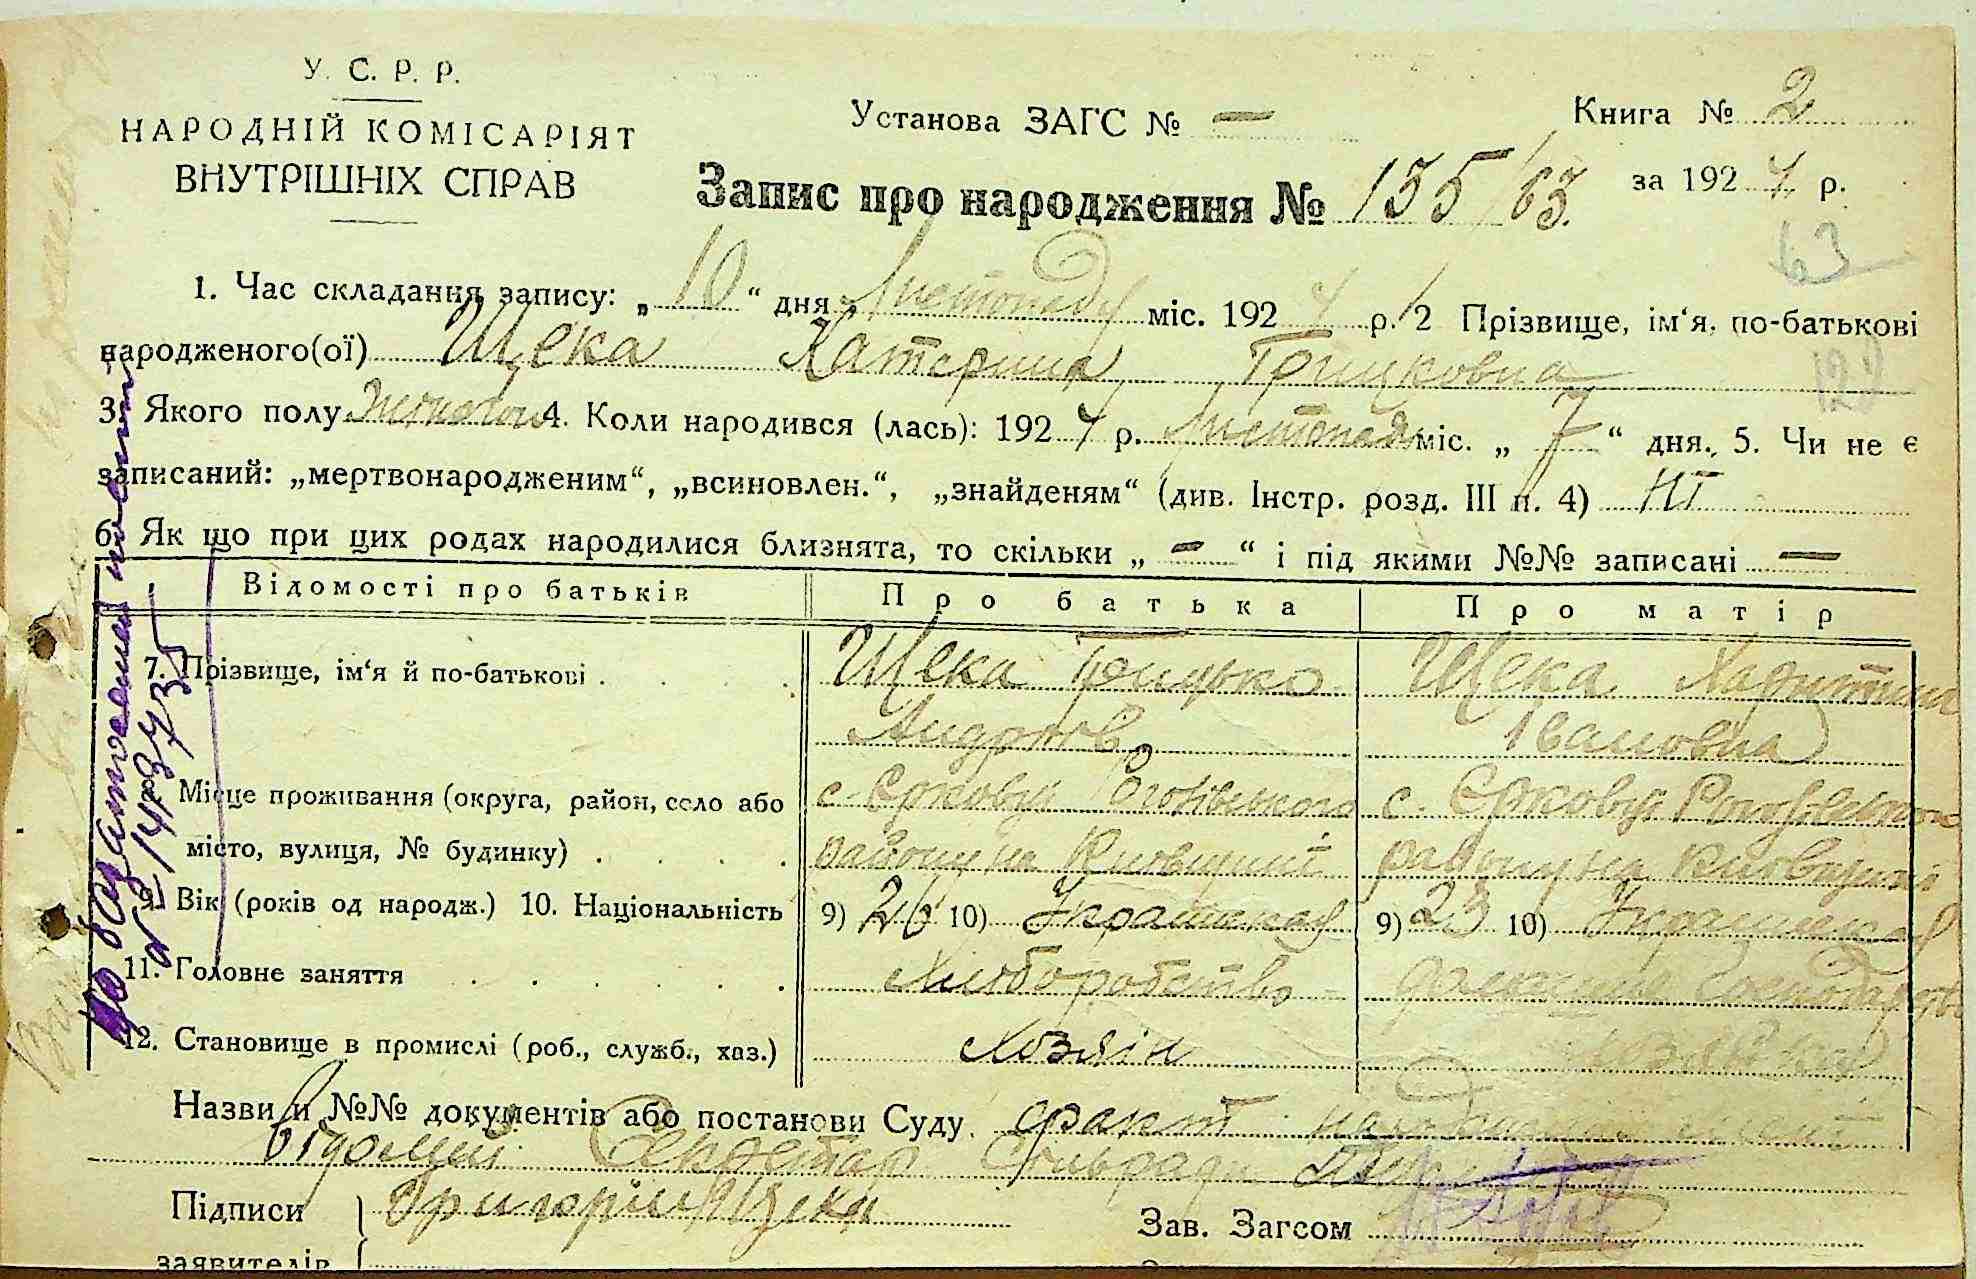 У. С. Р. Р.
НАРОДНІЙ КОМІСАРІЯТ
ВНУТРІШНІХ СПРАВ
Установа ЗАГС № —
Книга № 2
Запис про народження № 135/63.
за 1924 р.
63
1. Час складання запису: „ 10 “ дня Листопаду міс. 1924 р. 2 Прізвище, ім‘я, по-батькові
народженого(ої) Щека Катерина Грицковна
3. Якого полу жіночої 4. Коли народився (лась): 1924 р. Листопада міс. „ 7 “ дня., 5. Чи не є
записаний: „мертвонародженим“, „всиновлен.“, „знайденям“ (див. Інстр. розд. III п. 4) ні
6. Як що при цих родах народилися близнята, то скільки „ — “ і під якими №№ записані —
Відомості про батьків Про батька Про матір
7. Прізвище, ім‘я й по-батькові . . . . Щека Грицько Щека
Андріїв Івановна
8. Місце проживання (округа, район, село або с. Єрковці Рогозівського с. Єрковці
місто, вулиця, № будинку) . . . . району на Київщині району на Київщині
9. Вік (років од народж.) 10. Національність 9) 26 10) Українська 9) 23 10) Українська
11. Головне заняття . . . . . . Хліборобство домашнє господарство
12. Становище в промислі (роб., служб., хаз.) Хозяін
Назви й №№ документів або постанови Суду. факт народження
відомий Секретар Сільради
Підписи Григорій Щека Зав. Загсом
заявителів